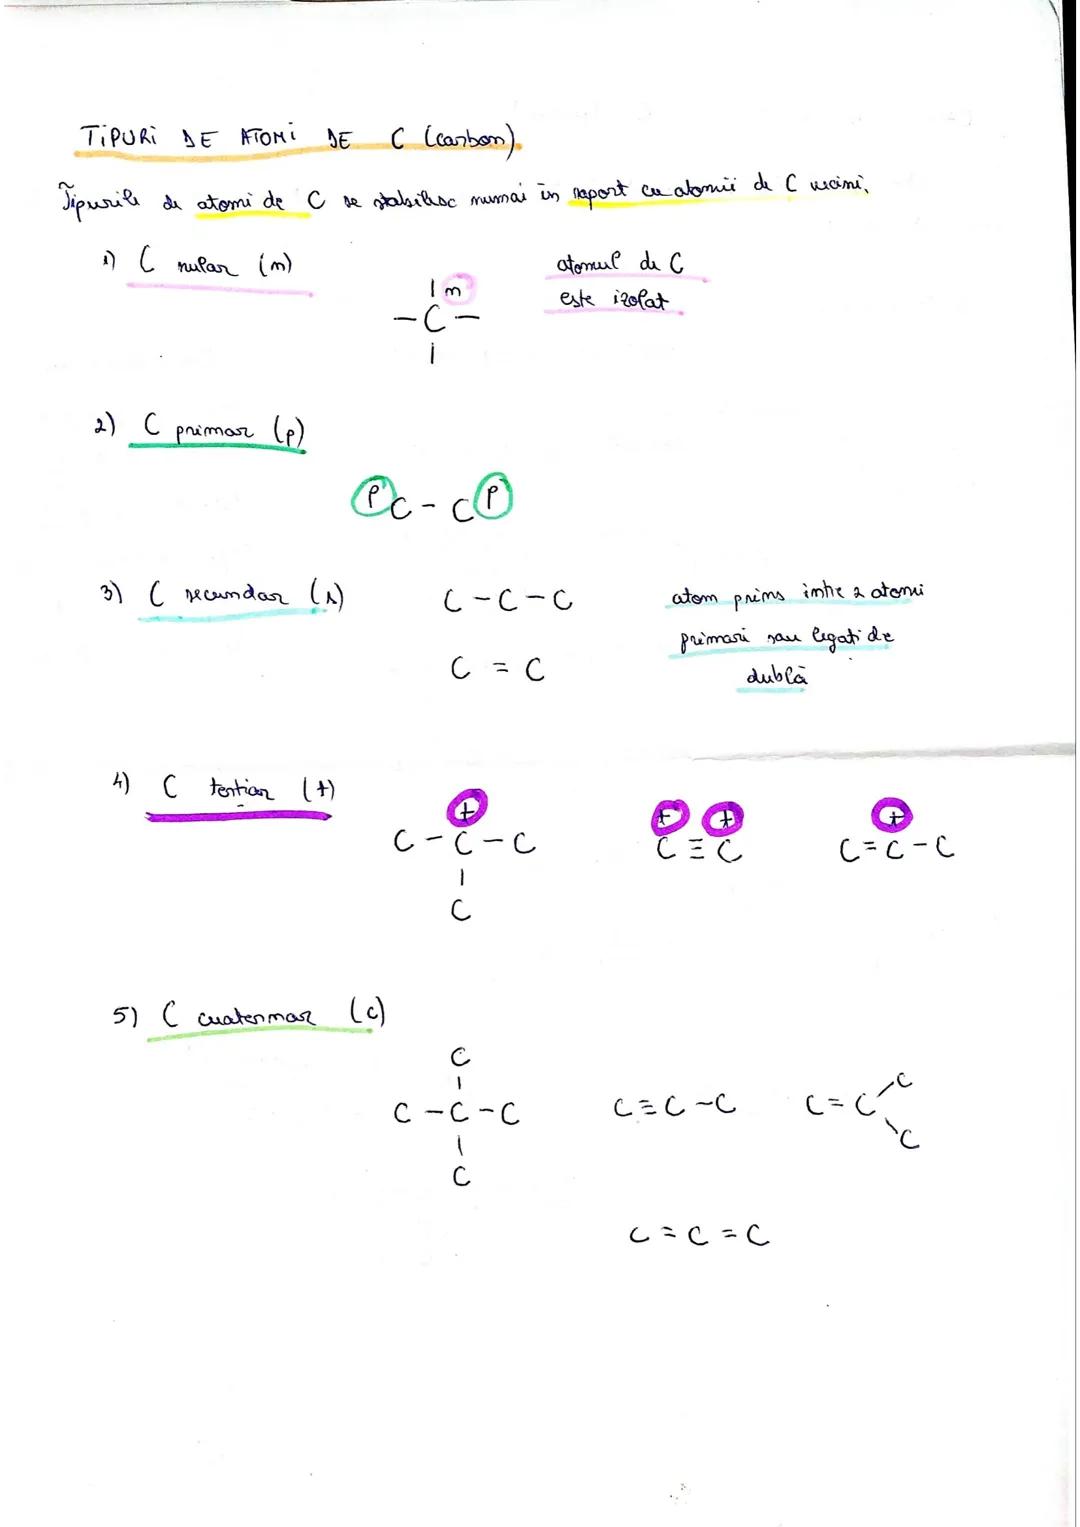 TIPURI DE ATOMI DE C (carbon).
Tipurile de atomi de C se stabilesc numai în raport cu atomii de C vecini.
1) C nular (n)
atomul de C
este izolat
| n
– C –
|
2) C primar (p)
p C – C p
3) C secundar (s)
C – C – C
C = C
atom prins între 2 atomi
primari sau legați de
dublă
4) C terțiar (t)
t
C – C – C
|
C
t t
C ≡ C
t
C = C – C
5) C cuaternar (c)
C
|
C – C – C
|
C
C ≡ C – C
C = C
C
C
C = C = C